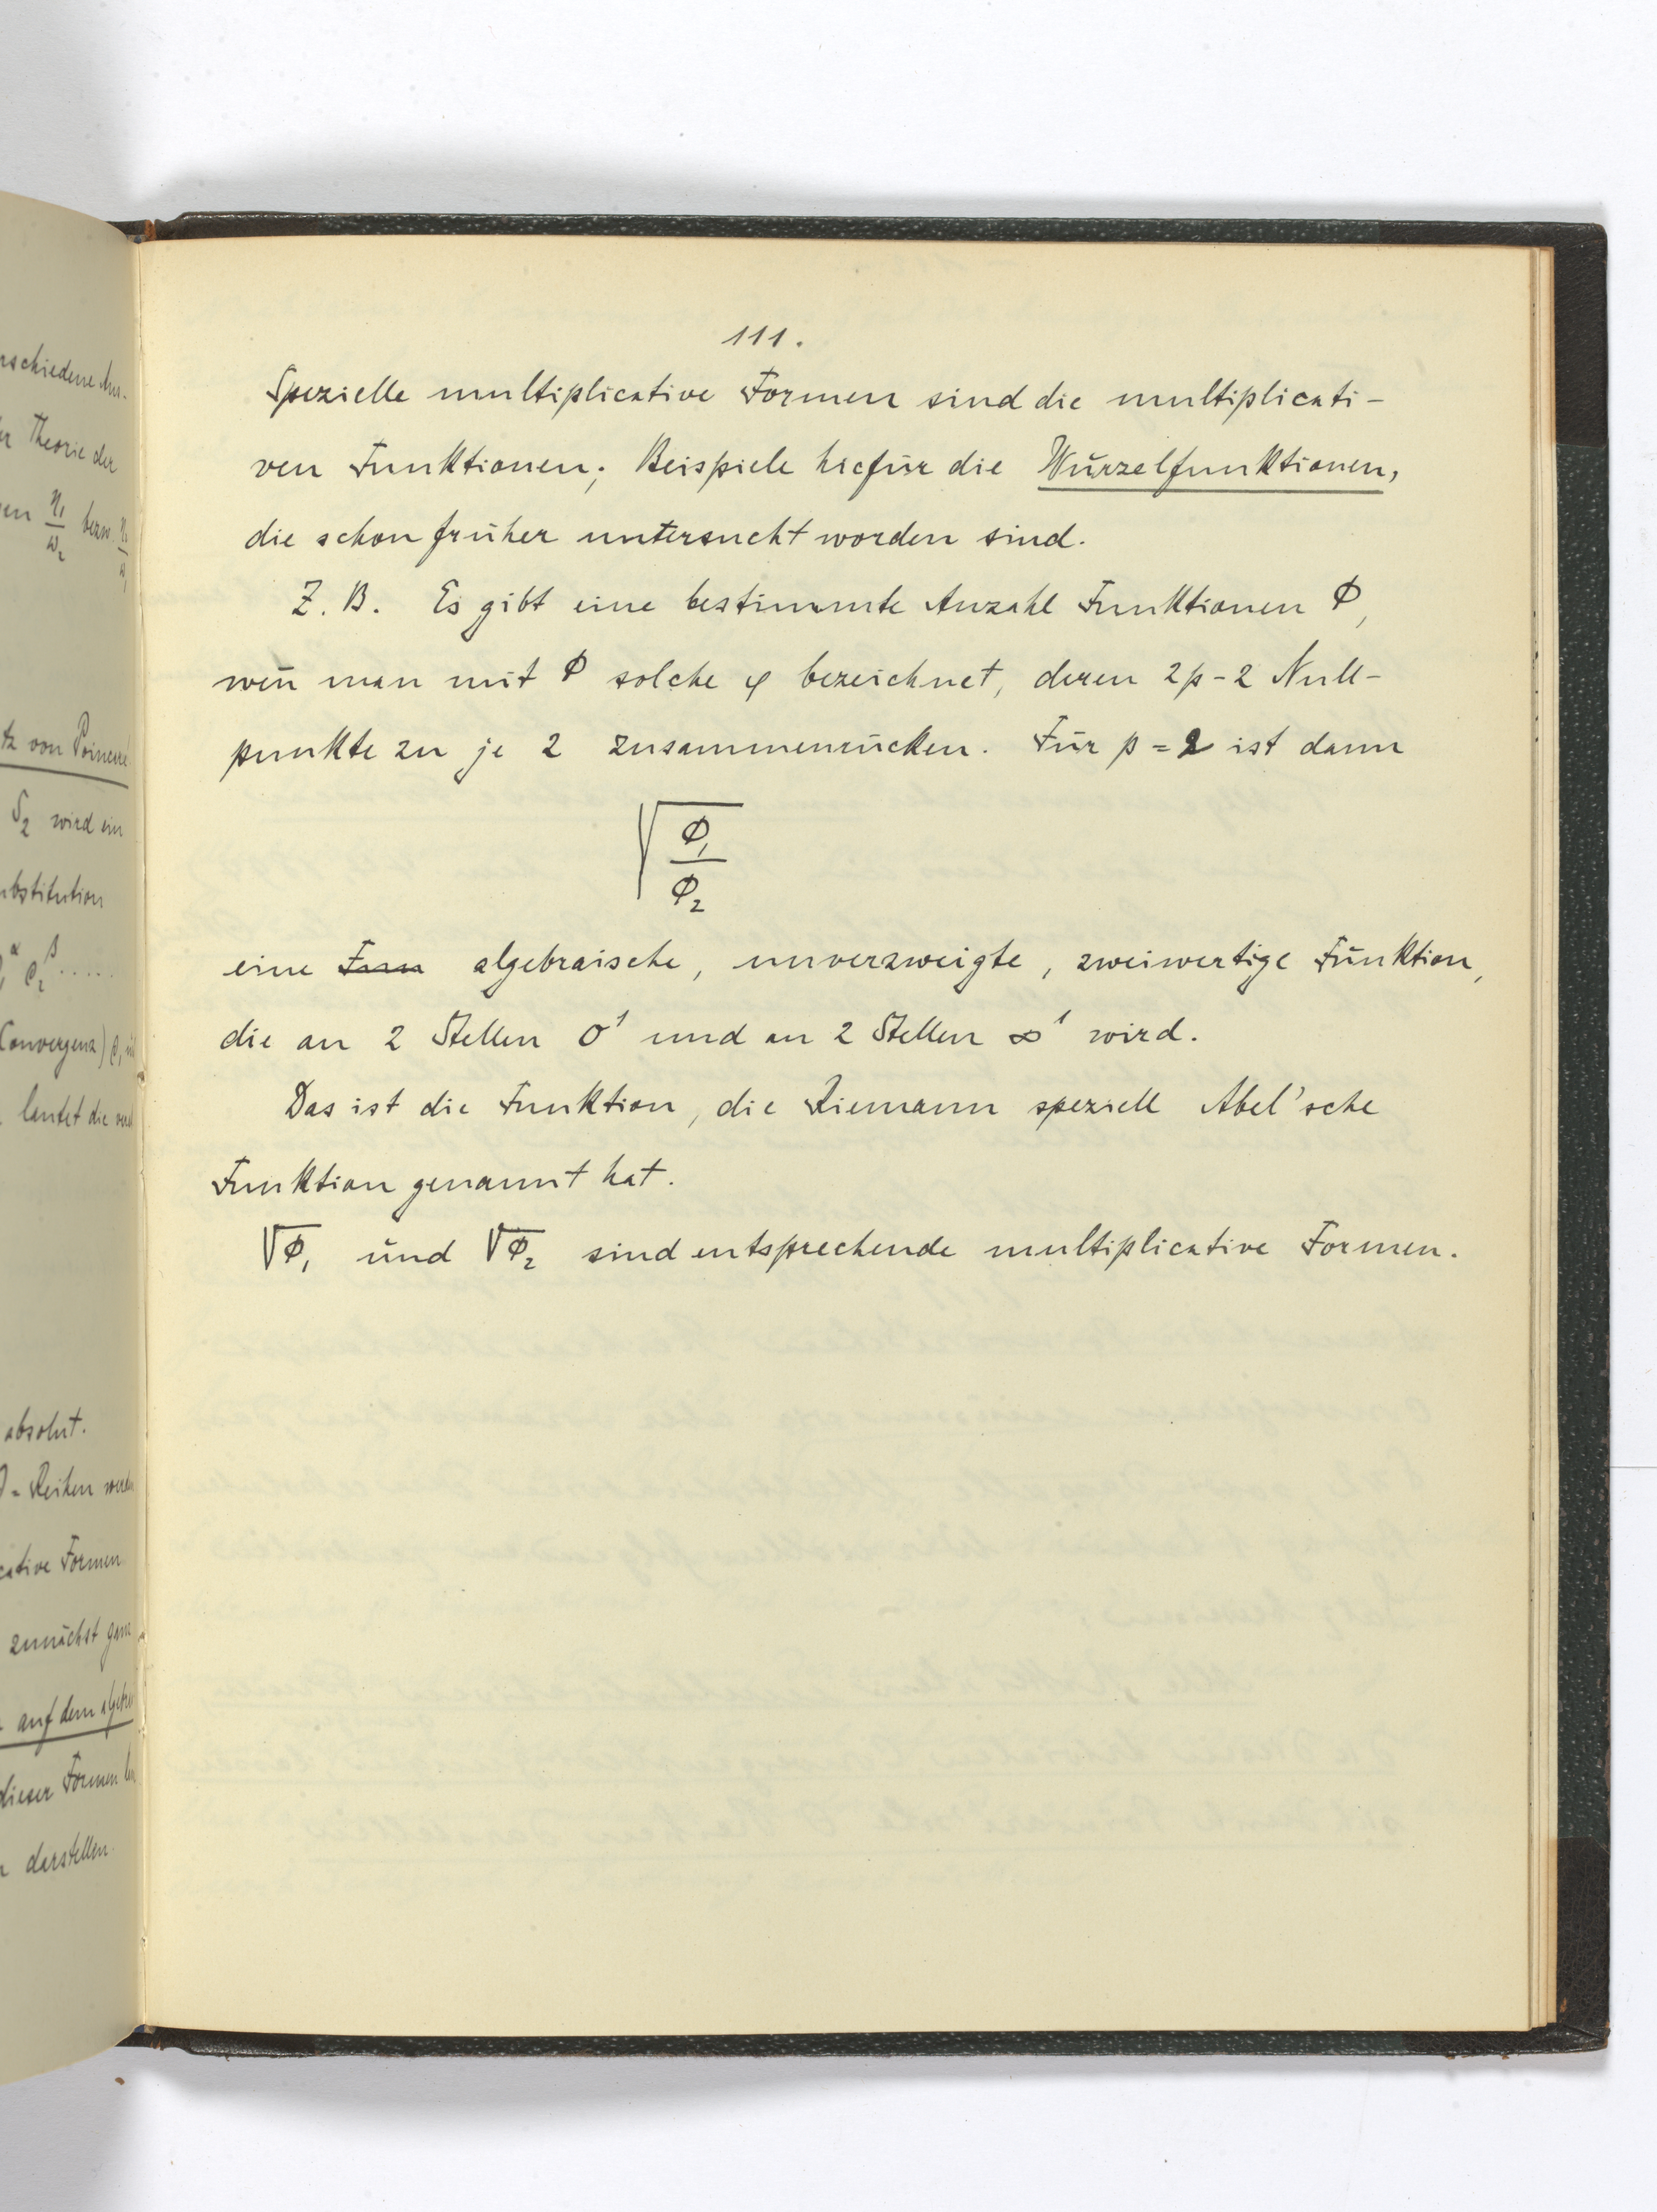 rschiedene Aus-
er Theorie der
en η₁/ω₂ bezw. η₁/ω₁
tz von Poincaré
S₂ wird ein
ubstitution
α β .....
Convergenz)
lautet die
absolut.
Reihen werden
cative Formen
zunächst ganz
auf dem algebr
dieser Formen
darstellen.
111.
Spezielle multiplicative Formen sind die multiplicati-
ven Funktionen; Beispiele hiefür die Wurzelfunktionen,
die schon früher untersucht worden sind.
Z. B. Es gibt eine bestimmte Anzahl Funktionen Φ,
wen̄ man mit Φ solche φ bezeichnet, deren 2p-2 Null-
punkte zu je 2 zusammenrücken. Für p = 2 ist dann
√(Φ₁/Φ₂)
eine Form algebraische, unverzweigte, zweiwertige Funktion,
die an 2 Stellen 0¹ und an 2 Stellen ∞¹ wird.
Das ist die Funktion, die Riemann speziell Abel'sche
Funktion genannt hat.
√Φ₁ und √Φ₂ sind entsprechende multiplicative Formen.